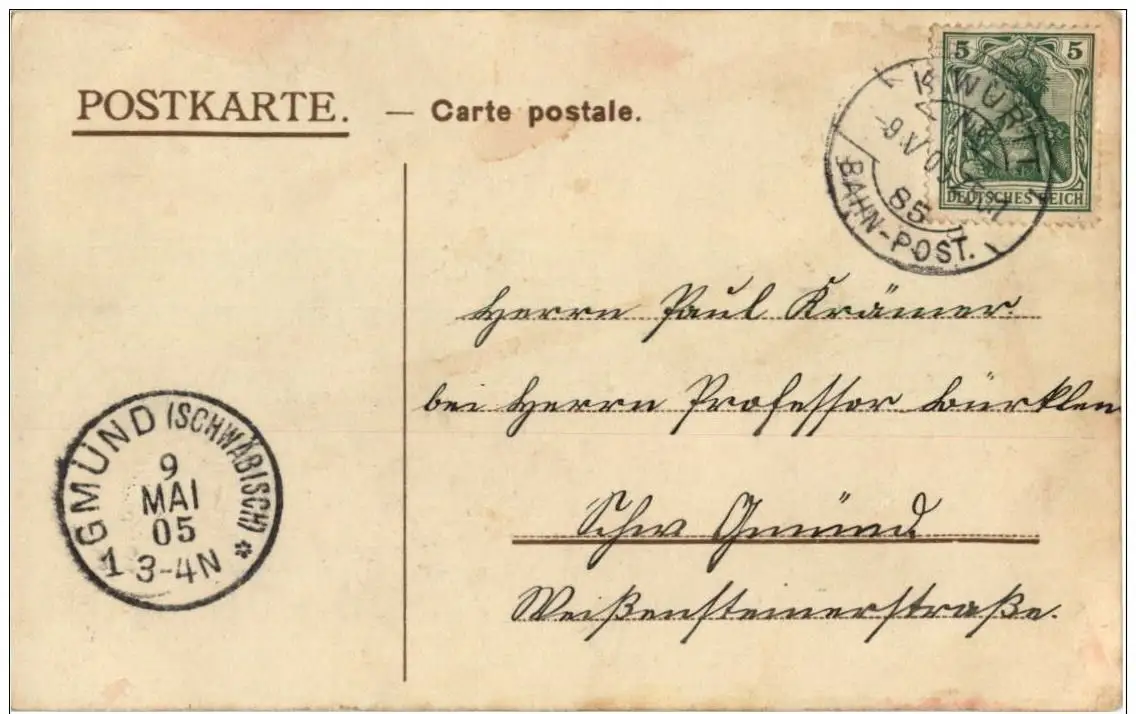 POSTKARTE. — Carte postale.
5 5
DEUTSCHES REICH
K. WÜRTT.
-9.V 05
85
BAHN-POST.
Herrn Paul Krämer.
bei Herrn Professor Bürklen
Schw Gmünd
Weißensteinerstraße.
GMÜND (SCHWÄBISCH)
9
MAI
05
1 3-4N *